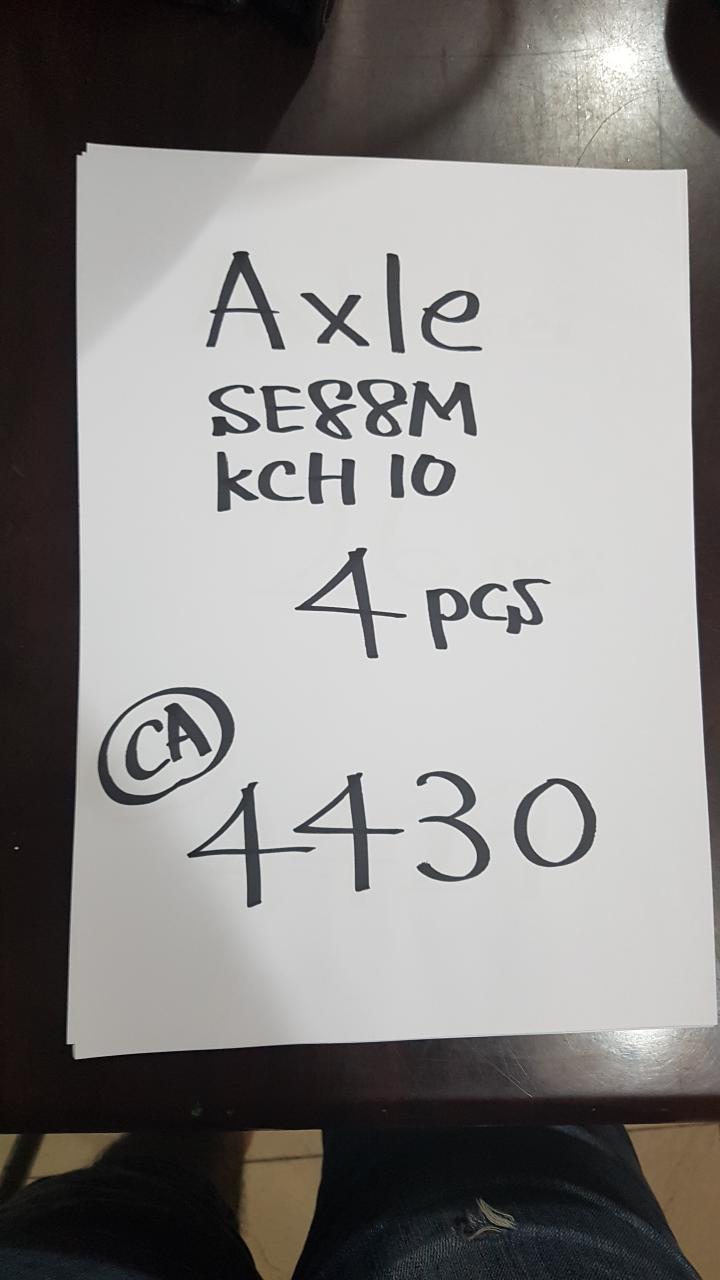 Axle
SE88M
KCH 10
4 pcs
CA
4430